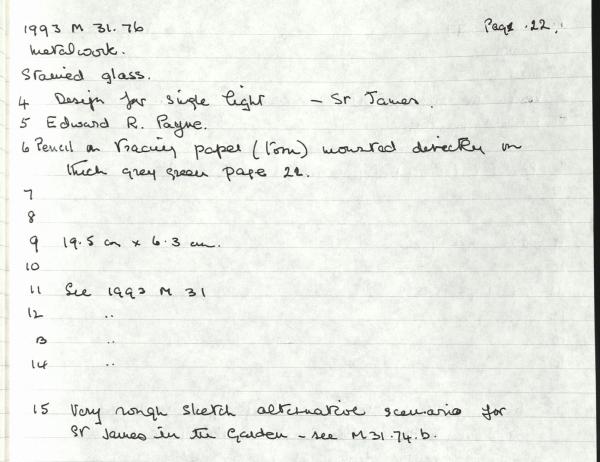 1993 M 31.76 Page .22.
Metalwork.
Stained glass.
4 Design for single light - St James.
5 Edward R. Payne.
6 Pencil on tracing paper (torn) mounted directly on
thick grey green page 22.
7
8
9 19.5 cm x 6.3 cm.
10
11 See 1993 M 31
12 ..
13 ..
14 ..
15 Very rough sketch alternative scenario for
St James in the Garden - see M31.74.b.